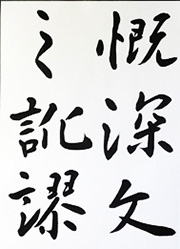 慨深文
之訛謬